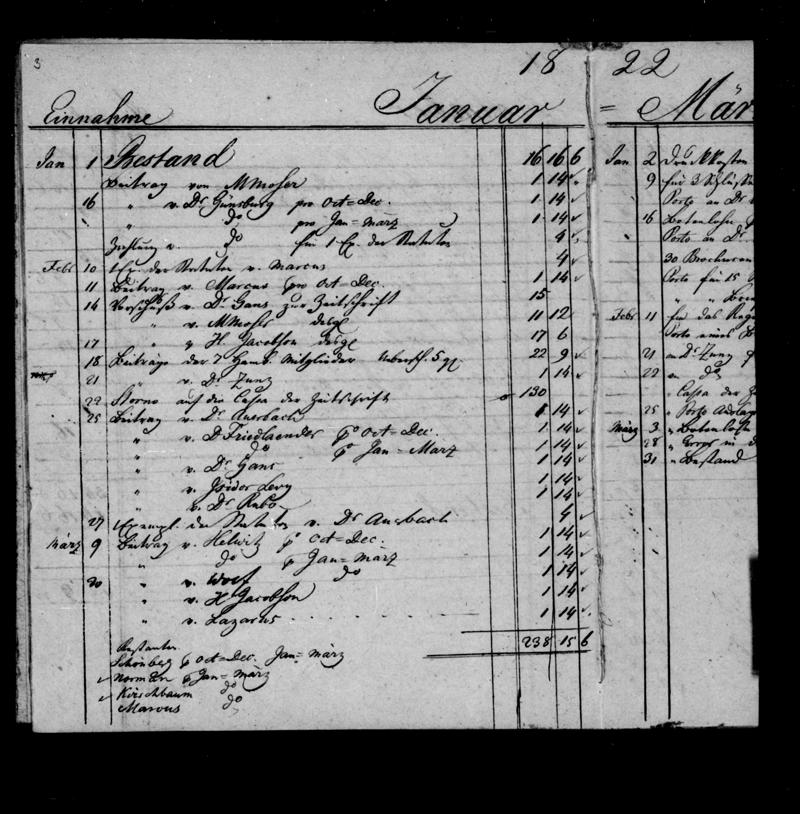 3
18 22
Einnahme Januar = Mär
Jan 1 Bestand 16 16 6
Beitrag von MMoser 1 14
16 " v. Dr Günsburg pro Oct=Dec. 1 14
" do pro Jan=März 1 14
Zahlung v. do für 1 Ex. der Statuten 4
Febr 10 1 Ex. der Statuten v. Marcus 4
11 Beitrag v. Marcus pro Oct=Dec. 1 14
14 Vorschuß v. Dr Gans zur Zeitschrift 15
" v. MMoser desgl 11 12
17 " " H Jacobson desgl 17 6
18 Beiträge der 7 Hamb. Mitglieder 22 9
21 " v. Dr Zunz 1 14
22 Storno auf die Cassa der Zeitschrift 130
25 Beitrag v. Dr Auerbach 1 14
" v. D Friedlaender po Oct=Dec. 1 14
" do po Jan=März 1 14
" v. Dr Gans 1 14
" v. Isidor Levy 1 14
" v. Dr Rubo 1 14
27 1 Exempl. der Statuten v. Dr Auerbach 4
März 9 Beitrag v. Helwitz po Oct=Dec. 1 14
" do po Jan=März 1 14
20 " v. Wolf do 1 14
" v. H Jacobson 1 14
" v. Lazarus 1 14
238 15 6
Restanten
Schönberg po Oct=Dec. Jan=März
Normann po Jan=März
Kirschbaum do
Marcus do
Jan 2 Druckkosten
9 für 3 Schlüsse
Porto an Dr
16 Botenlohn
Porto an Dr
30 Brochuren
Porto für 15
" "
Febr 11 für das
Porto eines
21 an Dr Zunz
22 " do
" Cassa der
25 " Porto
März 3 " Botenlohn
28 "
31 " Bestand